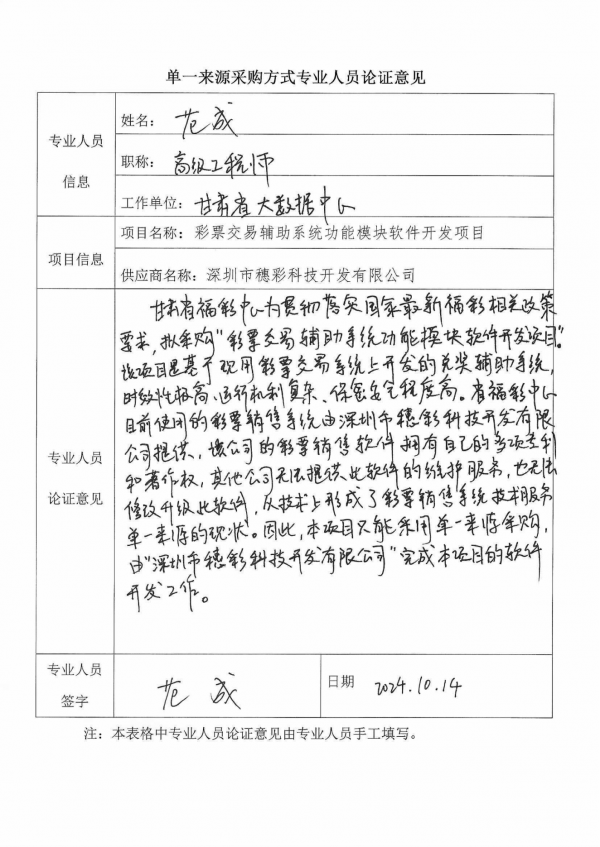 单一来源采购方式专业人员论证意见
专业人员
信息
姓名：范成
职称：高级工程师
工作单位：甘肃省大数据中心
项目信息
项目名称：彩票交易辅助系统功能模块软件开发项目
供应商名称：深圳市穗彩科技开发有限公司
专业人员
论证意见
甘肃省福彩中心为贯彻落实国家最新福彩相关政策
要求，拟采购“彩票交易辅助系统功能模块软件开发项目”。
该项目是基于现用彩票交易系统上开发的兑奖辅助系统，
时效性极高、运行机制复杂、保密安全程度高。省福彩中心
目前使用的彩票销售系统由深圳市穗彩科技开发有限
公司提供，该公司的彩票销售软件拥有自己的多项专利
和著作权，其他公司无法提供此软件的维护服务，也无法
修改升级此软件，从技术上形成了彩票销售系统技术服务
单一来源的现状。因此，本项目只能采用单一来源采购，
由“深圳市穗彩科技开发有限公司”完成本项目的软件
开发工作。
专业人员
签字
范成
日期 2024.10.14
注：本表格中专业人员论证意见由专业人员手工填写。